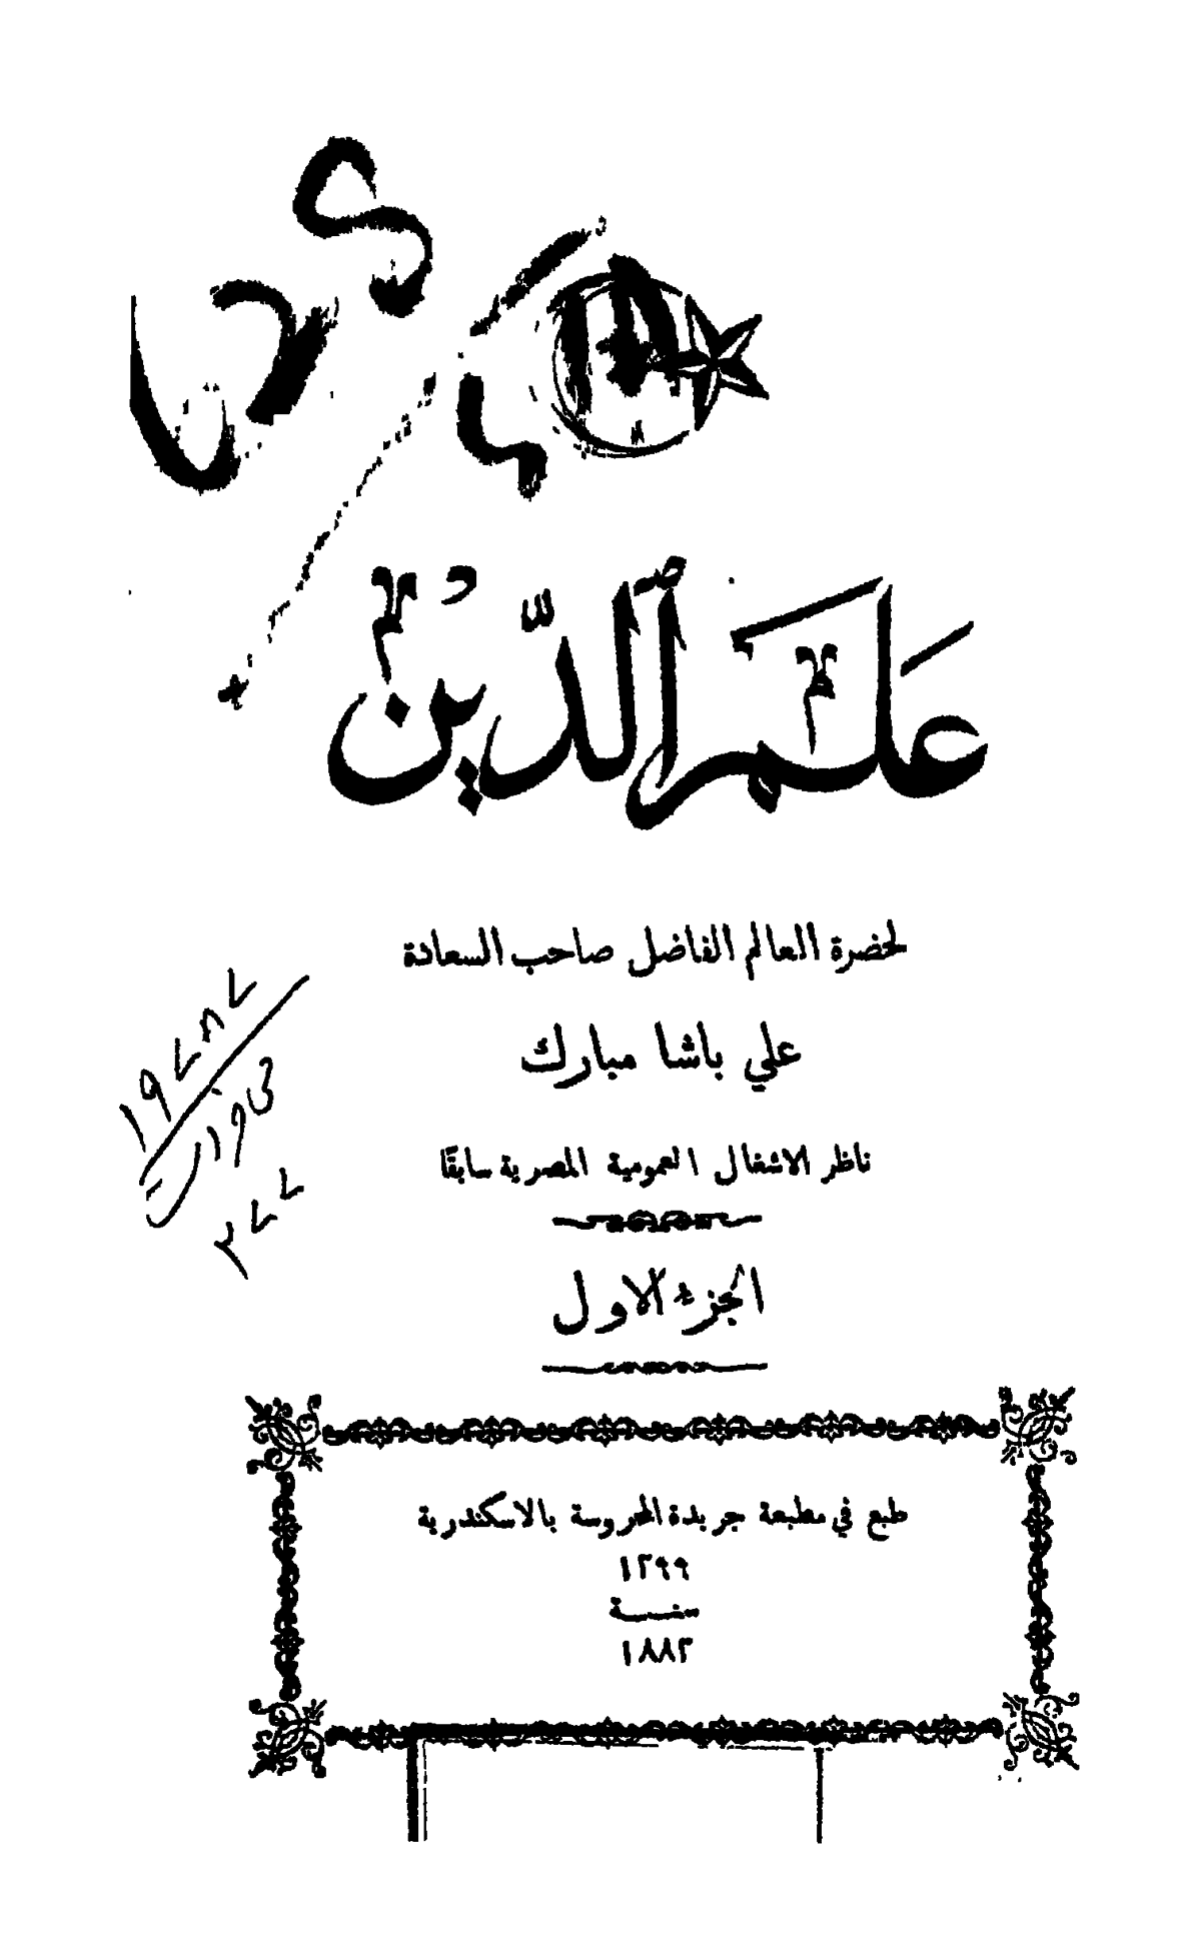 علم الدين
لحضرة العالم الفاضل صاحب السعادة
علي باشا مبارك
ناظر الاشغال العمومية المصرية سابقًا
الجزء الاول
طبع في مطبعة جريدة المحروسة بالاسكندرية
١٢٩٩
سنة
١٨٨٢